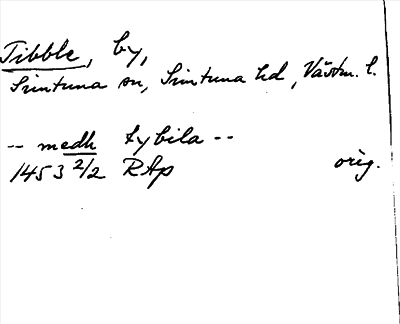 Tibble, by,
Simtuna sn, Simtuna hd, Västm. l.
-- medh tybila --
1453 2/2 RAp orig.